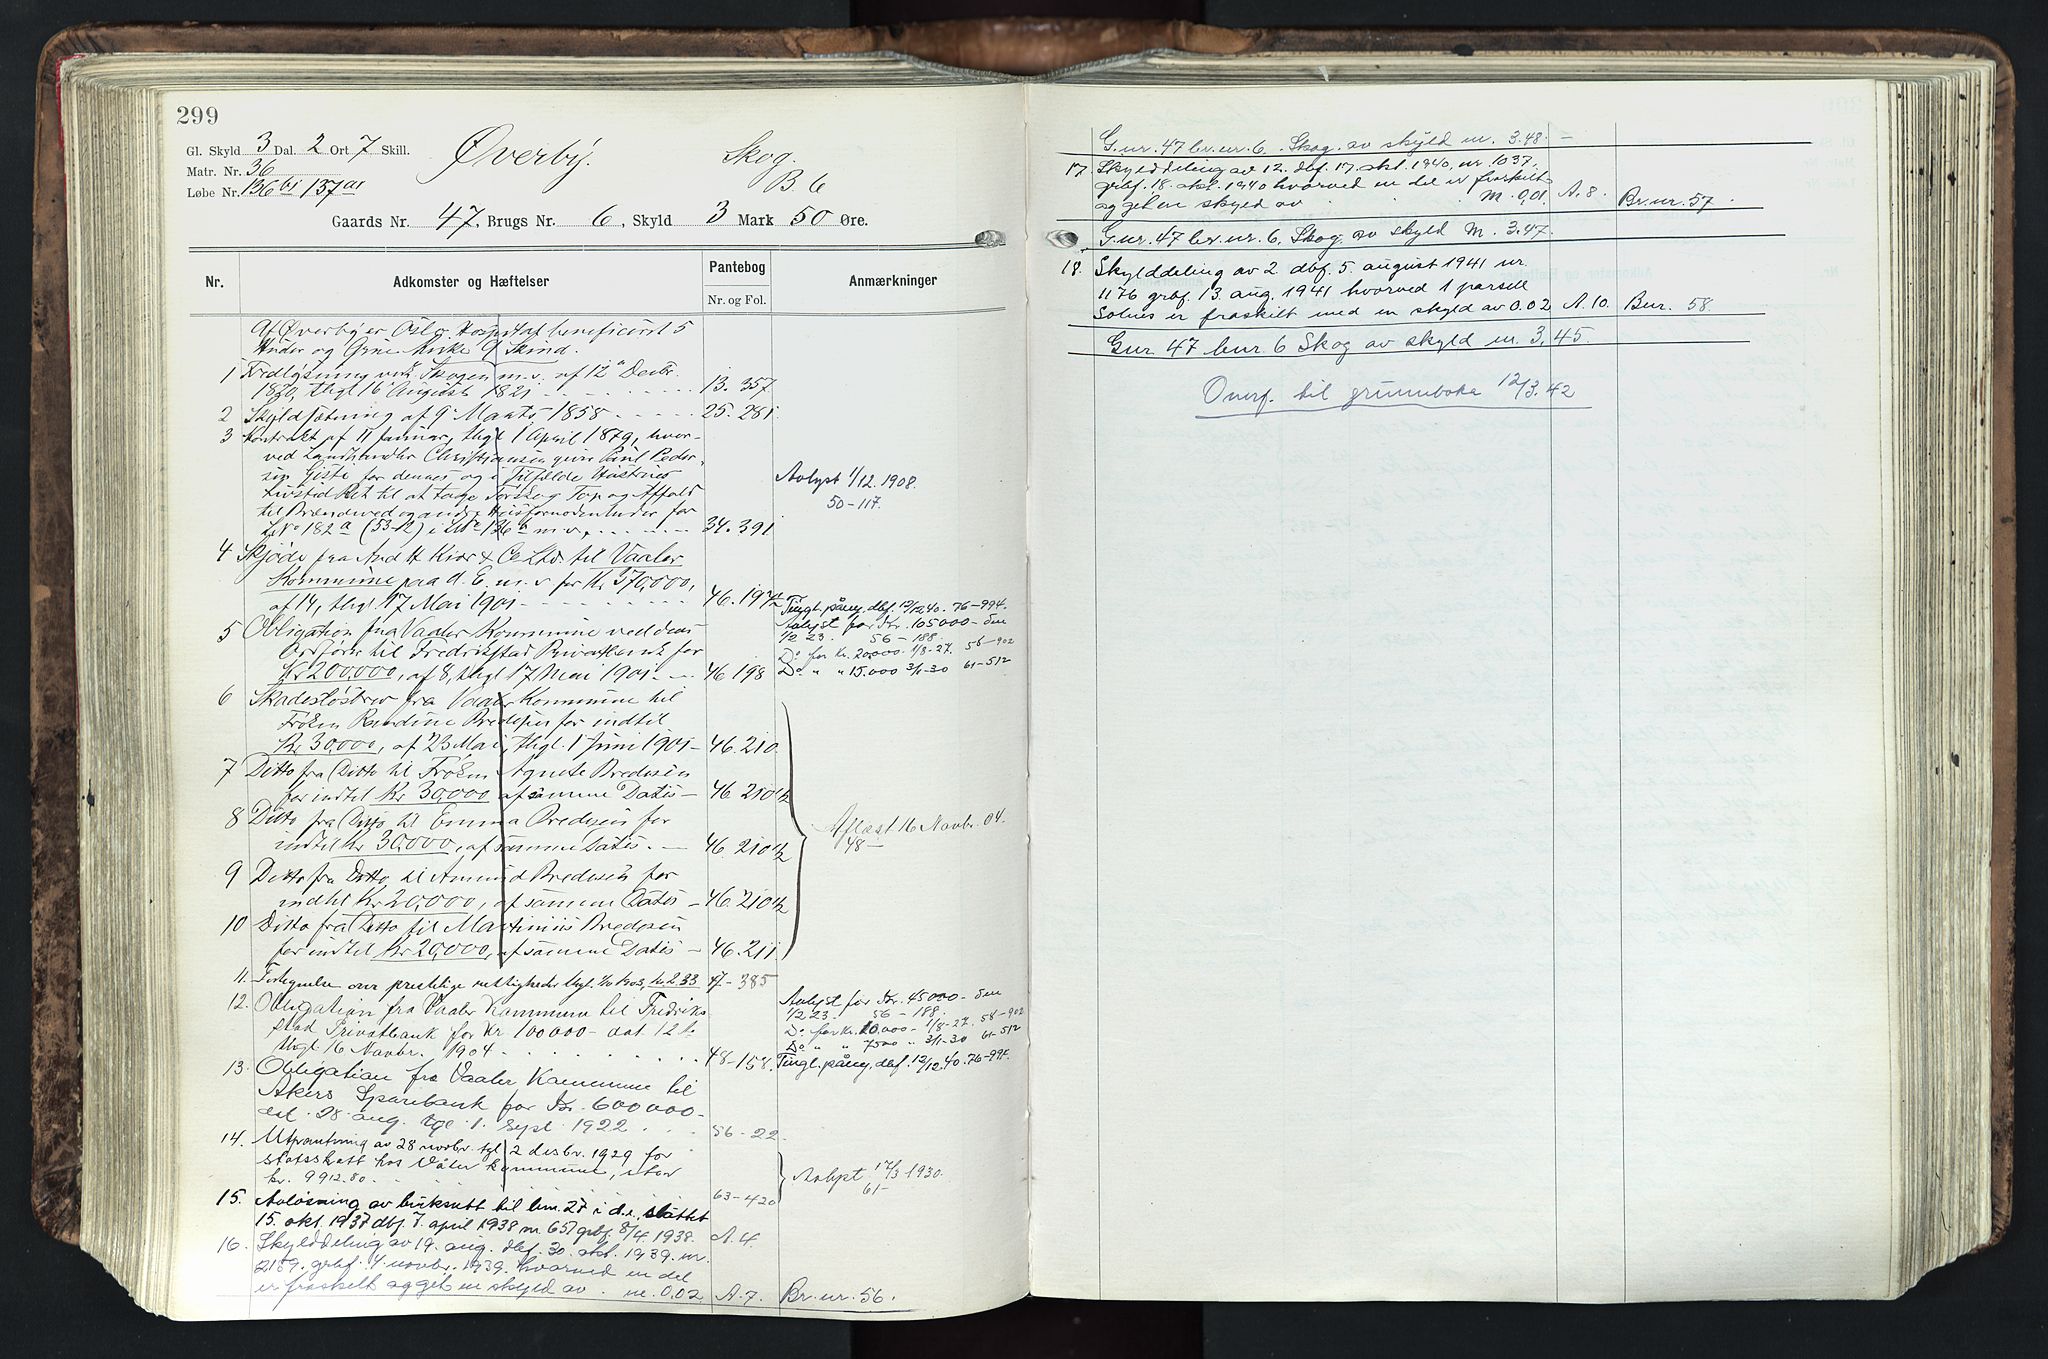 299
Gl. Skyld 3 Dal. 2 Ort 7 Skill.
Matr. Nr. 36
Løbe Nr. 136 bi 137 ar
Øverby. Skog.
B. 6
Gaards Nr. 47, Brugs Nr. 6, Skyld 3 Mark 50 Øre.
Nr. Adkomster og Hæftelser Pantebog Anmærkninger
Nr. og Fol.
Af Øverby er Oslo Hospital beneficeret 5
Huder og Grue Kirke 9 Skind.
1 m.v. af 12te Decbr.
thgl 16 August 1821 13. 357
2 Skyldsætning af 9de Marts 1858 25. 281
3 Kontrakt af 11 Januar, thgl 1 April 1879, hvor-
ved Landhandler Christiansen giver Paul Peder-
sen for dennes og i Tilfælde Hustrues
Livstid Ret til at tage Top og Affald
til Brændeved og andre for
LNo 182a (53-12) i LNo 136 b m.v. 34. 391
Avlyst 1/12. 1908.
50-117.
4 Skjøde fra And H Kiær & Co Ltd. til Vaaler
Kommune paa d. E. m. v for Kr 370,000,
af 14, thgl 17 Mai 1901 46. 197
5 Obligation fra Vaaler Kommune ved dens
Ordfører til Fredrikstad Privatbank for
Kr 200,000, af 8, thgl 17 Mai 1901 46 198
Tingl. påteg. dbf. 12/12. 40. 76-994.
Avlyst for Kr. 105000 - den
1/2 23. 56-188.
Do for Kr. 20.000 1/8-27. 58-902
Do " " 15.000 3/1-30 61-512
6 Skadesløsbrev fra Vaaler Kommune til
Frøken Bredesen for indtil
Kr 30,000, af 23 Mai, thgl. 1 Juni 1901 - 46. 210.
7 Ditto fra Ditto til Frøken Agnete Bredesen
for indtil Kr 30,000 af samme Datis - 46 210 1/2
8 Ditto fra Ditto til Emma Bredesen for
indtil Kr 30,000, af samme Datis. - 46. 210 1/2
9 Ditto fra Ditto til Amund Bredesen for
indtil Kr 20,000, af samme Datis - 46. 210 1/2
10 Ditto fra Ditto til Martinius Bredesen
for indtil Kr 20,000, af samme Datis - 46. 211
Aflæst 16 Novbr. 04.
48-
11. Fortegnelse over prestelige rettigheder thgl. 47-385
12. Obligation fra Vaaler Kommune til Fredrik-
stad Privatbank for Kr 100000 - dat 12 
thgl. 16 Novbr. 1904 48-158.
Avlyst for Kr. 45000 - den
1/2 23. 56-188.
Do for Kr. 10.000 - 1/8-27. 58-902
Do " " 7500 " 3/1-30 61-512
Tingl. påteg. dbf. 12/12. 40. 76-994.
13. Obligation fra Vaaler Kommune til
Akers Sparebank for Kr. 600000 -
dat. 28 aug. tgl. 1. sept. 1922 56-22
14. Utpantning av 28 novbr. tgl 2 desbr. 1929 for
statsskatt hos Våler kommune, stor
kr. 9912.80 63-420
Avlyst 17/3 1930.
61-
15. Avløsning av bruksrett til bnr. 27 i d.e. sluttet
15. okt. 1937 dbf. 7. april 1938 nr. 651 grbf. 8/4. 1938. A. 4.
16. Skylddeling av 19. aug. dbf. 30. okt. 1939. nr.
2159. grbf. 4. novbr. 1939. hvorved en del
er fraskilt og git en skyld av m. 0,02 A. 7. Br. nr. 56.
G.nr. 47 br. nr. 6. Skog. av skyld m. 3.48. -
17 Skylddeling av 12. dbf. 17. okt. 1940. nr. 1037,
grbf. 18. okt. 1940 hvorved en del er fraskilt
og git en skyld av M. 0,01. A. 8. Br. nr. 57
G.nr. 47 br. nr. 6. Skog av skyld M. 3.47.
18. Skylddeling av 2. dbf. 5. august 1941 nr.
1176 grbf. 13. aug. 1941 hvorved 1 parsell
Solnes er fraskilt med en skyld av 0.02 A. 10. Bnr. 58.
Gnr. 47 bnr. 6 Skog av skyld m. 3,45.
Overf. til grunnboka 12/3. 42